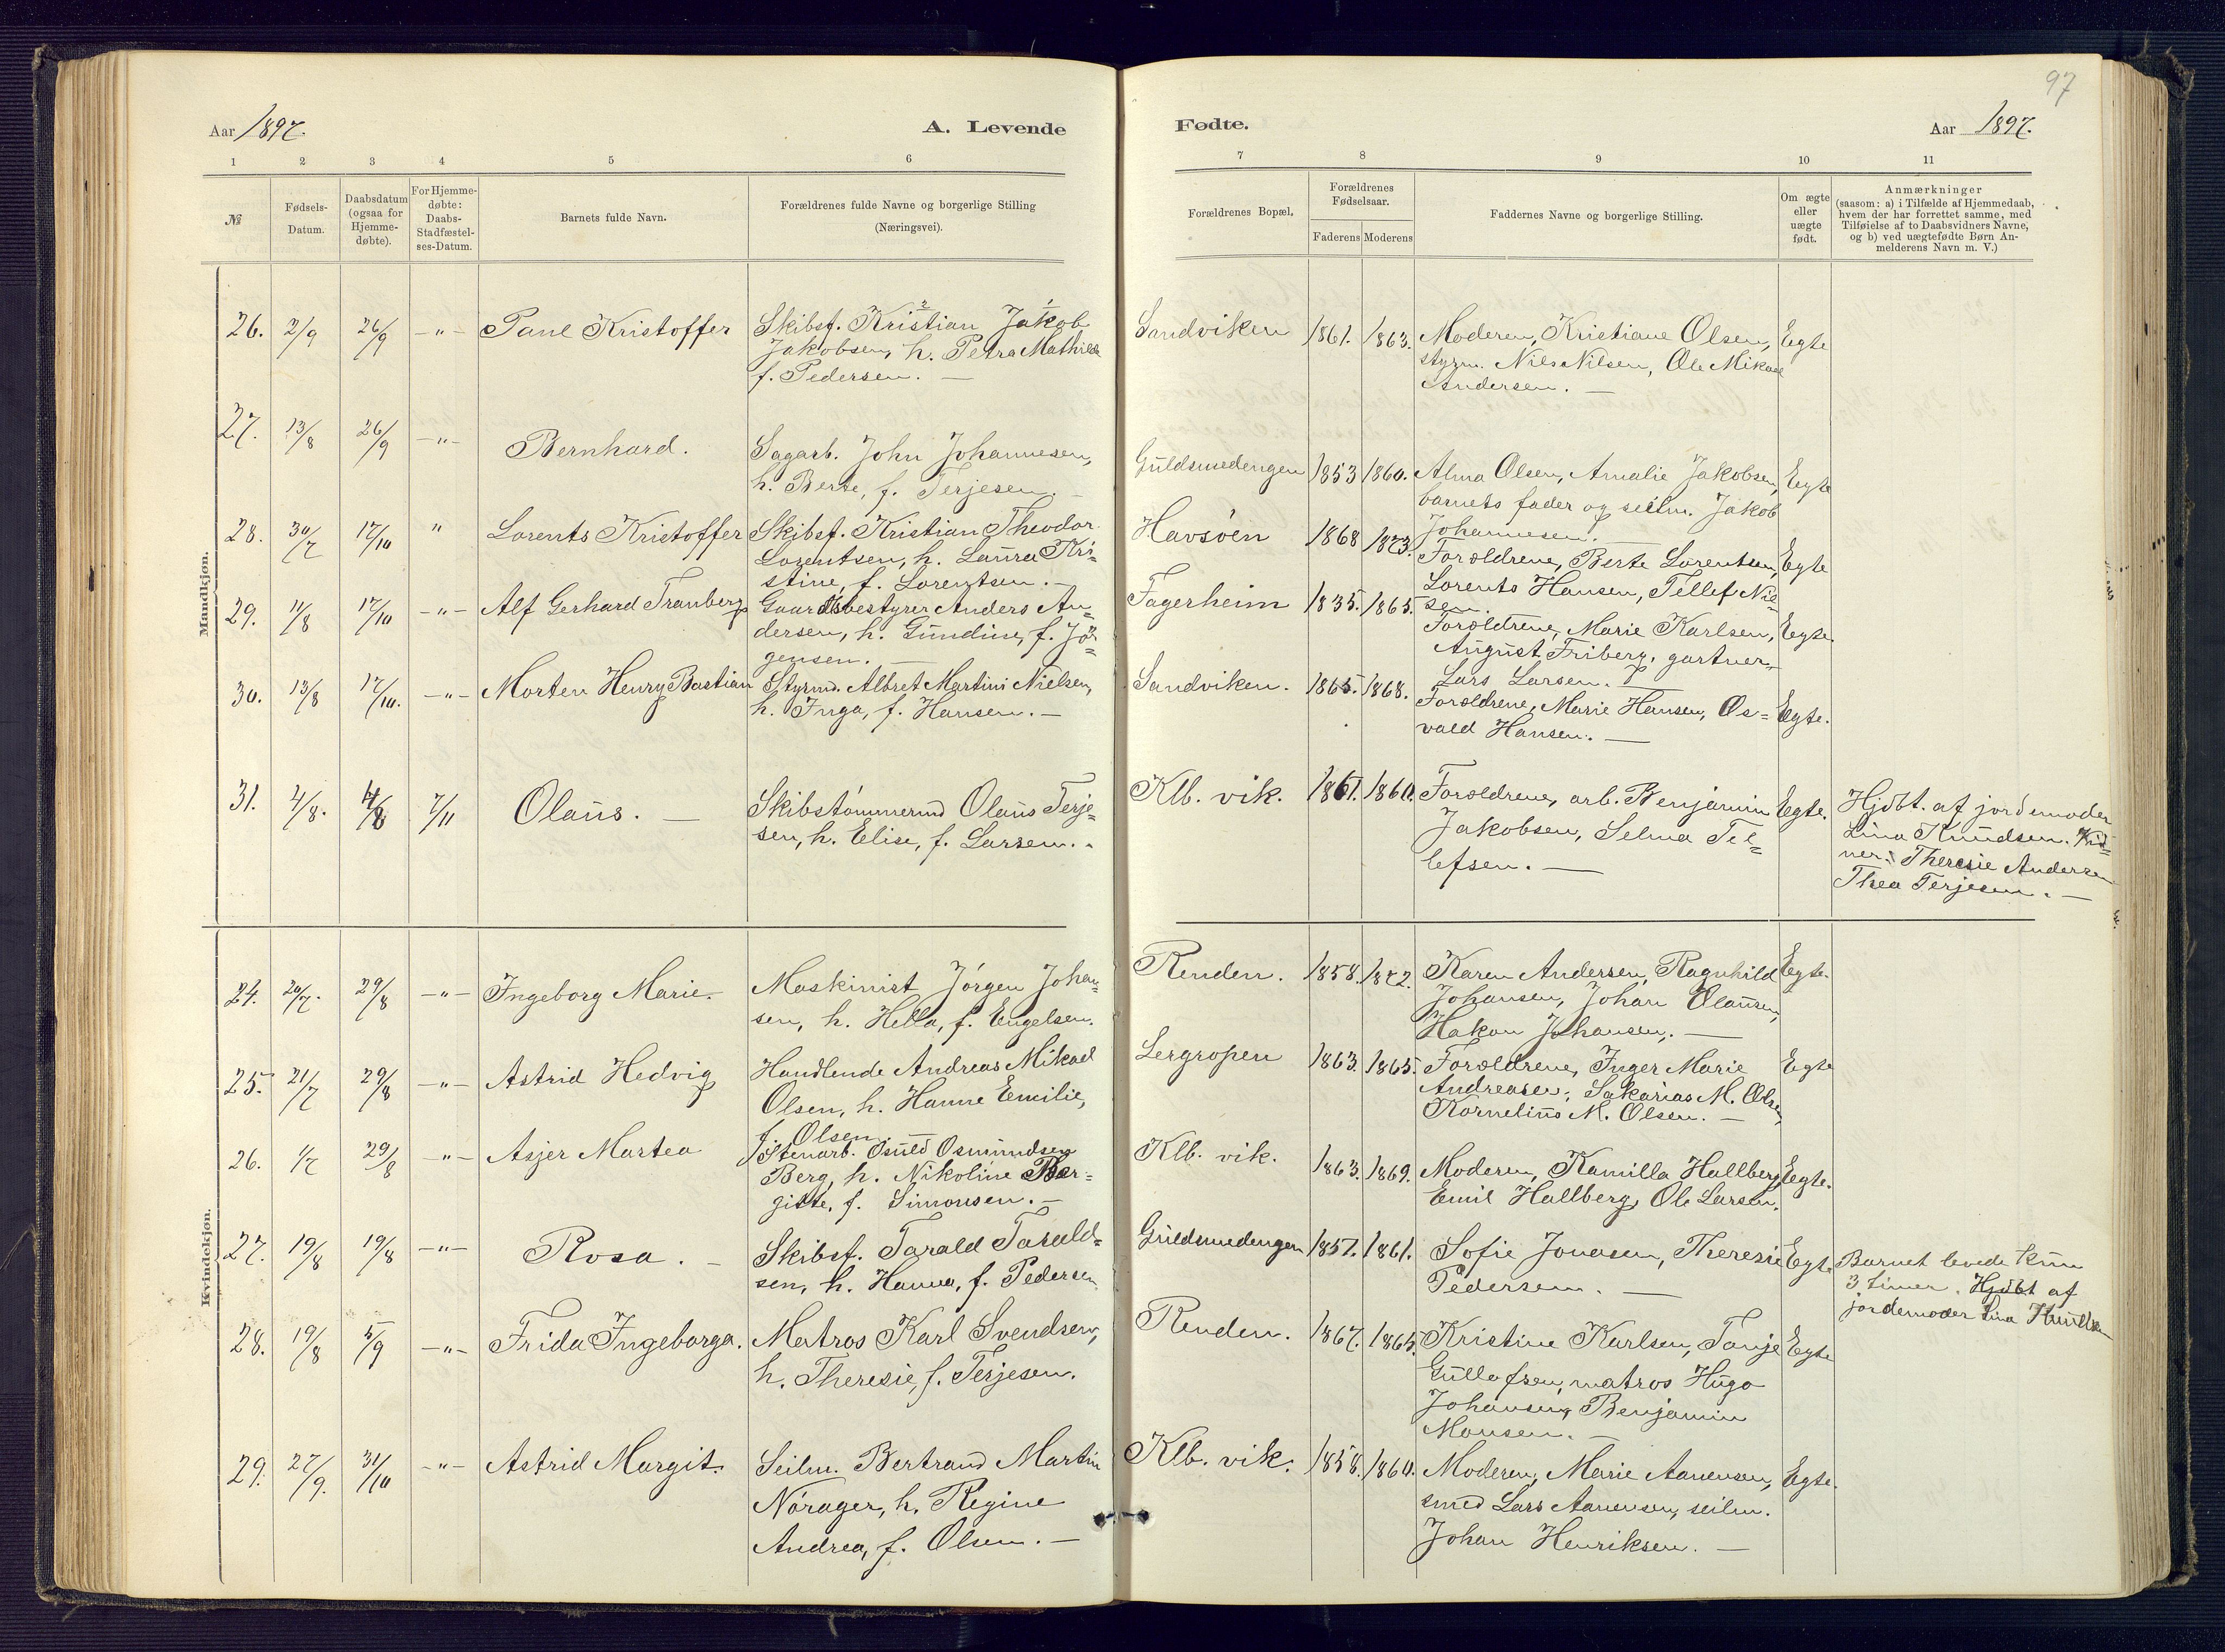 97
Aar 1897.
A. Levende
Fødte.
Aar 1897.
1 2 3 4 5 6 7 8 9 10 11
№
Fødsels-
Datum.
Daabsdatum
(ogsaa for
Hjemme-
døbte).
For Hjemme-
døbte:
Daabs-
Stadfæstel-
ses-Datum.
Barnets fulde Navn.
Forældrenes fulde Navne og borgerlige Stilling
(Næringsvei).
Forældrenes Bopæl.
Forældrenes
Fødselsaar.
Faderens Moderens
Faddernes Navne og borgerlige Stilling.
Om ægte
eller
uægte
født.
Anmærkninger
(saasom: a) i Tilfælde af Hjemmedaab,
hvem der har forrettet samme, med
Tilføielse af to Daabsvidners Navne,
og b) ved uægtefødte Børn An-
melderens Navn m. V.)
Mandkjøn.
26. 2/9 26/9 -"- Paul Kristoffer
Skibsf. Kristian Jakob
Jakobsen, h. Petra Mathilde
f. Pedersen. —
Sandviken 1861. 1863.
Moderen, Kristiane Olsen,
styrm. Nils Nilsen, Ole Mikael
Andersen. —
Egte
27. 13/8 26/9 -"- Bernhard.
Sagarb. John Johannesen,
h. Berte, f. Terjesen. —
Guldsmedengen 1853 1860.
Alma Olsen, Amalie Jakobsen,
barnets fader og seilm. Jakob
Johannesen. —
Egte
28. 30/7 17/10 " Lorents Kristoffer
Skibsf. Kristian Theodor
Lorentsen, h. Laura Kri=
stine, f. Lorentsen. —
Havsöen 1868 1873.
Foroldrene, Berte Lorentsen,
Lorents Hansen, Tellef Nil=
sen.
Egte
29. 11/8 17/10 -"- Alf Gerhard Tranberg
Gaardsbestyrer Anders An=
dersen, h. Gundine, f. Jö=
gensen. —
Fagerheim 1835. 1865.
Foroldrene, Marie Karlsen,
August Friberg, gartner
Lars Larsen. —
Egte.
30. 13/8 17/10. -"- Morten Henry Bastian
Styrmd. Albret Martini Nielsen,
h. Inga, f. Hansen. —
Sandviken. 1865. 1868.
Foroldrene, Marie Hansen, Os=
vald Hansen. —
Egte.
31. 4/8. 4/8 7/11 Olaus. —
Skibstömmermd Olaus Terje=
sen, h. Elise, f. Larsen. -
Klb. vik. 1861. 1860.
Foroldrene, arb. Benjamin
Jakobsen, Selma Tel=
lefsen. —
Egte.
Hjdbt. af jordemoder
Lina Knudsen. Vid=
ner: Theresie Andersen
Thea Terjesen. —
Kvindekjøn.
24. 20/7. 29/8 -"- Ingeborg Marie.
Maskinist Jörgen Johan=
sen, h. Hella, f. Engelsen.
Renden. 1858. 1872.
Karen Andersen, Ragnhild
Johansen, Johan Olausen,
Hakon Johansen, —
Egte.
25. 21/7 29/8 -"- Astrid Hedvig
Handlende Andreas Mikael
Olsen, h. Hanne Emilie,
f. Olsen
Lergropen 1863. 1865.
Foroldrene, Inger Marie
Andreasen, Sakarias M. Olsen,
Kornelius M. Olsen. —
Egte
26. 1/7 29/8 -"- Asjer Martea
Stenarb. Osuld Osmundsen
Berg, h. Nikoline Ber=
gitte, f. Simonsen. —
Klb. vik. 1863. 1869.
Moderen, Kamilla Hallberg,
Emil Hallberg, Ole Larsen.
Egte.
27. 19/8 19/8 -"- Rosa. —
Skibsf. Tarald Tarald=
sen, h. Hanna, f. Pedersen
Guldsmedengen 1857. 1861.
Sofie Jonasen, Theresie
Pedersen. —
Egte
Barnet levede kun
3 timer. Hjdbt af
jordemoder Lina Knudsen
28. 19/8 5/9 -"- Frida Ingeborga.
Matros Karl Svendsen,
h. Theresie, f. Terjesen.
Renden. 1867. 1865.
Kristine Karlsen, Tonje
Gullofsen, matros Hugo
Johansen, Benjamin
Monsen. —
Egte
29. 27/9. 31/10 -"- Astrid Margit.
Seilm. Bertrand Martin
Nörager, h. Regine
Andrea, f. Olsen. —
Klb. vik. 1858. 1860.
Moderen, Marie Aanensen,
smed Lars Aanensen, seilm.
Johan Henriksen. —
Egte.